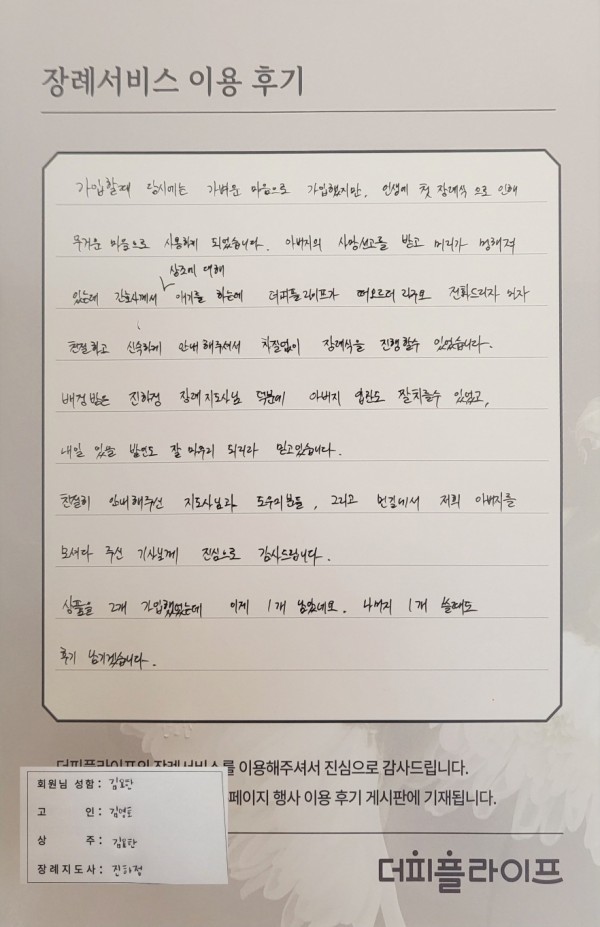 장례서비스 이용 후기
가입할때 당시에는 가벼운 마음으로 가입했지만, 인생에 첫 장례식 으로 인해
무거운 마음으로 사용하게 되었습니다. 아버지의 사망선고를 받고 머리가 멍해져
상조에 대해
있는데 간호사께서 얘기를 하는데 더피플라이프가 떠오르더라구요 전화드리자 마자
친절하고 신속하게 안내해주셔서 차질없이 장례식을 진행할수 있었습니다.
배정받은 진하정 장례지도사님 덕분에 아버지 입관도 잘치를수 있었고,
내일 있을 발인도 잘 마무리 되리라 믿고있습니다.
친절히 안내해주신 지도사님과 도우미분들, 그리고 먼길에서 저희 아버지를
모셔다 주신 기사님께 진심으로 감사드립니다.
상품을 2개 가입했었는데 이제 1개 남았네요. 나머지 1개 쓸때도
후기 남기겠습니다.
더피플라이프의 장례서비스를 이용해주셔서 진심으로 감사드립니다.
페이지 행사 이용 후기 게시판에 기재됩니다.
회원님 성함:
고 인:
상 주:
장례지도사: 진하정
더피플라이프